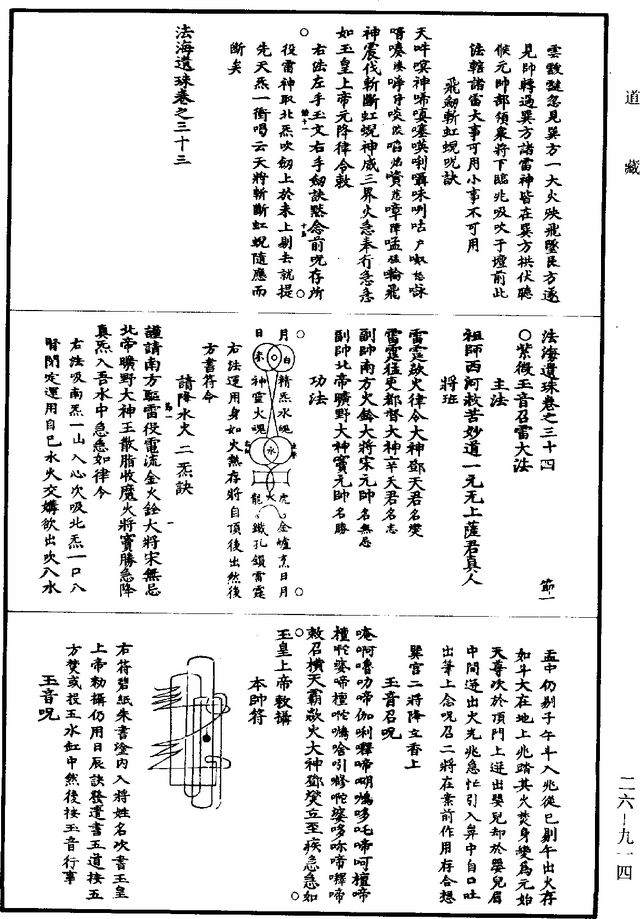 道藏
雲靉靆忽見巽方一大火殃飛墜艮方遂
見帥轉過巽方諸雷神皆在巽方拱伏聽
候元帥部領衆將下臨兆吸吹于壇前此
法轄諸雷大事可用小事不可用
飛劒斬虹蜺呪訣
神震伐斬斷虹蜺神威三界火急奉行急急
如玉皇上帝元降律令敕
○右法左手玉文右手劒訣黙念前呪存所
役雷神取北炁吹劒上於未上剔去就提
先天炁一衝喝云天將斬斷虹蜺隨應而
斷矣
法海遺珠卷之三十三
法海遺珠卷之三十四 節一
○紫微玉音召雷大法
主法
祖師西河救苦妙道一元无上薩君真人
將班
雷霆歘火律令大神鄧天君名燮
雷霆猛吏都督大神辛天君名志
副帥南方火鈴大將宋元帥名無忌
副帥北帝曠野大神竇元帥名勝
功法
月 白 精炁水魂 水 虎 金爐烹日月
日 赤 神靈火魂 火 龍 鐵孔鎖雷霆
右法運用身如火熱存將自頂後出然後
方書符令
請降水火二炁訣
謹請南方驅雷役電流金火鈴大將宋無忌
北帝曠野大神王散脂收魔火將竇勝急降
真炁入吾水中急急如律令
右法吸南炁一山入心次吸北炁一口入
腎閉定運用自己水火交媾欲出吹入水
盂中仍剔子午斗入兆從巳剔午出火存
如斗大在地上兆踏其火焚身變爲元始
天尊次於頂門上迸出嬰兒却於嬰兒眉
中間迸出火光兆急忙引入鼻中自口吐
出筆上念呪召二將在案前作用存合想
巽宫二將降立香上
玉音召呪
敕召横天霸歘火大神鄧燮立至疾急急如
玉皇上帝敕攝
本帥符
右符碧紙朱書燈内入將姓名次書玉皇
上帝勑攝仍用日辰訣發遣書五道按五
方焚或投五水缸中然後按玉音行事
玉音呪
二六—九一四